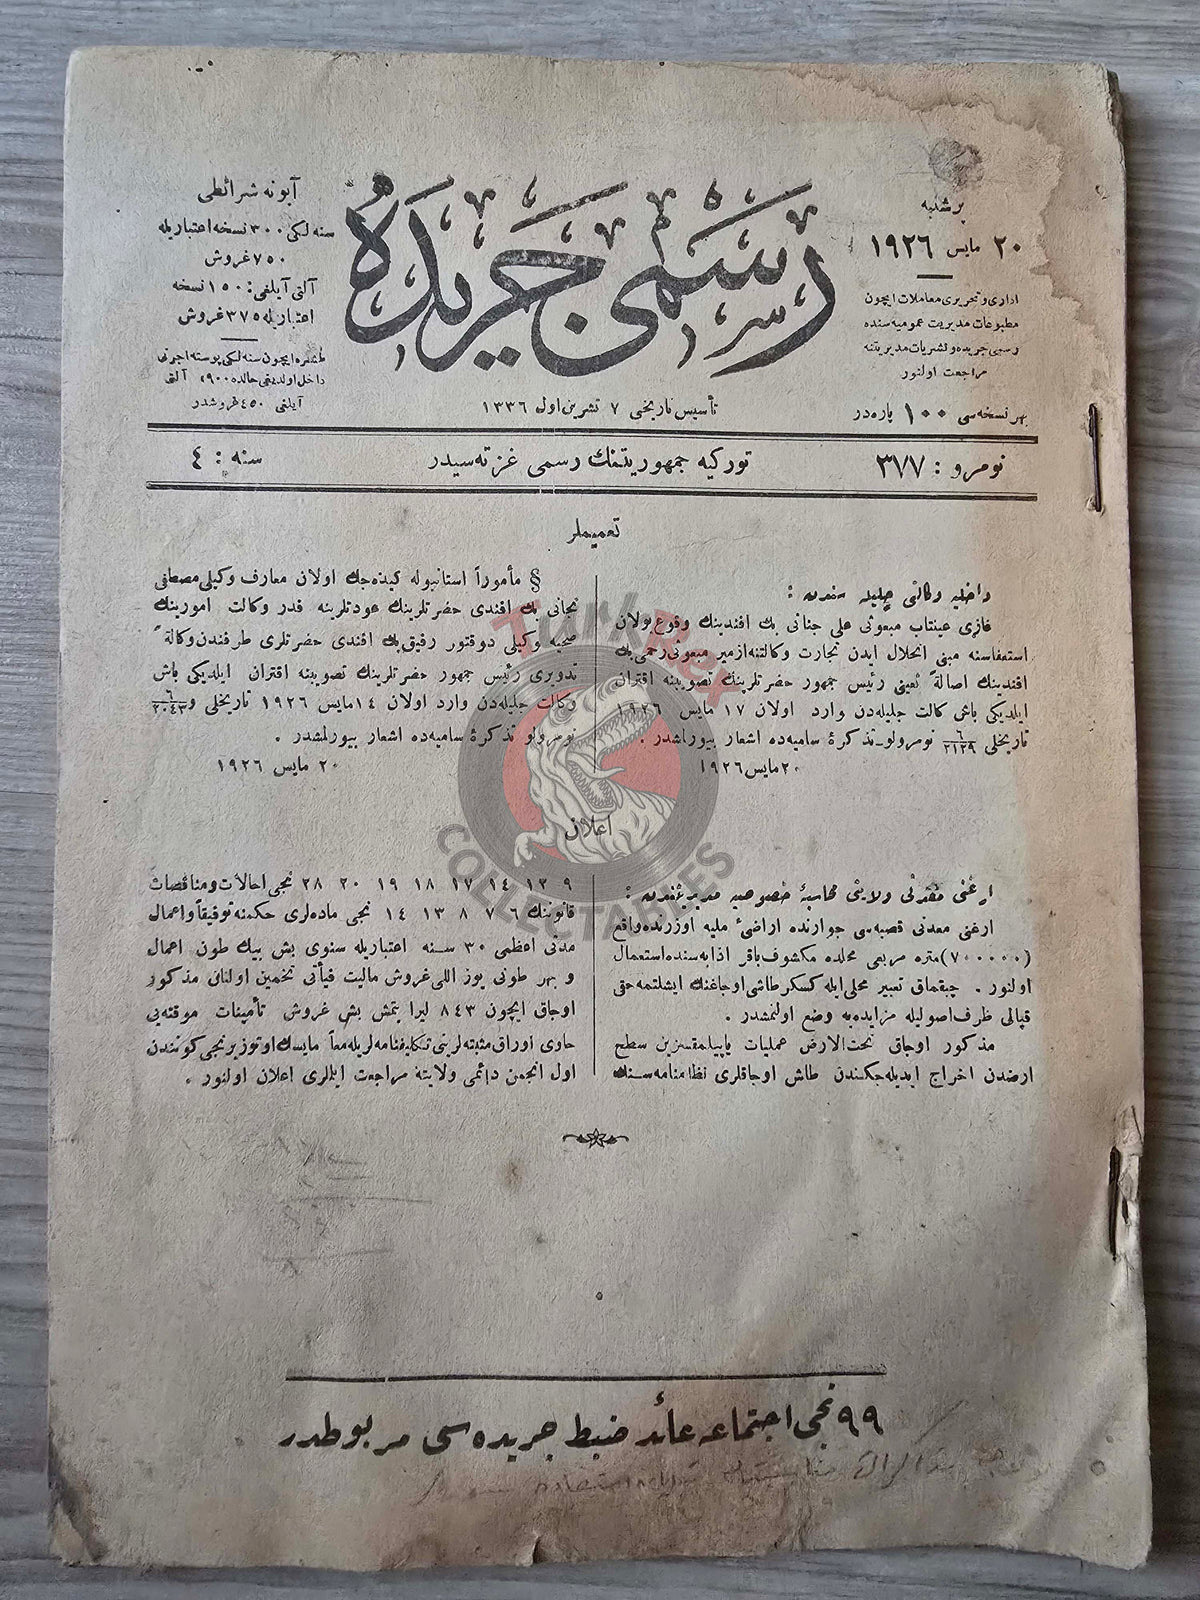 پرشنبه
٢٠ مایس ١٩٢٦
اداری و تحریری معاملات ایچون
مطبوعات مدیریت عمومیه سنده
رسمی جریده و نشریات مدیریتنه
مراجعت اولنور
بهر نسخه سی ١٠٠ پاره در
رسمی جریده
تأسیس تاریخی ٧ تشرین اول ١٣٣٦
آبونه شرائطی
سنه لکی ٣٠٠ نسخه اعتباریله
٧٥٠ غروش
آلتی آیلغی : ١٥٠ نسخه
اعتباریله ٣٧٥ غروش
طشره ایچون سنه لکی پوسته اجرتی
داخل اولدیغی حالده ٩٠٠ آلتی
آیلغی ٤٥٠ غروشدر
نومرو : ٣٧٧
تورکیه جمهوریتنك رسمی غزته سیدر
سنه : ٤
تعمیملر
داخلیه وکالتی جلیله سندن :
غازی عینتاب مبعوثی علی جنانی بك افندینك وقوعبولان
استعفاسنه مبنی انحلال ایدن تجارت وکالتنه ازمیر مبعوثی رحمی بك
افندینك اصالةً تعیینی رئیس جمهور حضرتلرینك تصویبنه اقتران
ایلدیکی باش وکالت جلیله دن وارد اولان ١٧ مایس ١٩٢٦
تاریخلی ٦/٢١٣٩ نومرولو تذکرۀ سامیه ده اشعار بیورلمشدر .
٢٠ مایس ١٩٢٦
§ مأموراً استانبوله کیده جك اولان معارف وکیلی مصطفی
نجاتی بك افندی حضرتلرینك عودتلرینه قدر وکالت امورینك
صحیه وکیلی دوقتور رفیق بك افندی حضرتلری طرفندن وکالةً
تدویری رئیس جمهور حضرتلرینك تصویبنه اقتران ایلدیکی باش
وکالت جلیله دن وارد اولان ١٤ مایس ١٩٢٦ تاریخلی و ٦/٢٠٤٣
نومرولو تذکرۀ سامیه ده اشعار بیورلمشدر .
٢٠ مایس ١٩٢٦
TurkRex
COLLECTABLES
اعلان
ارغنی معدنی ولایتی محاسبۀ خصوصیه مدیریتندن :
ارغنی معدنی قصبه سی جوارنده اراضیٔ ملیه اوزرنده واقع
(٧٠٠٠٠٠) متره مربعی محلده مکشوف باقر اذابه سنده استعمال
اولنور . چیقماق تعبیر محلی ایله کسکر طاشی اوجاغنك ایشلتمه حقی
قپالی ظرف اصولیله مزایده یه وضع اولنمشدر .
مذکور اوجاق تحت الارض عملیات یاپیلمقسزین سطح
ارضدن اخراج ایدیله جکندن طاش اوجاقلری نظامنامه سنك
٩ ١٣ ١٤ ١٧ ١٨ ١٩ ٢٠ ٢٨ نجی احالات و مناقصات
قانوننك ٦ ٧ ٨ ١٣ ١٤ نجی ماده لری حکمنه توفیقاً و اعمال
مدتی اعظمی ٣٠ سنه اعتباریله سنوی بش بیك طون اعمال
و بهر طونی یوز اللی غروش مالیت فیأتی تخمین اولنان مذکور
اوجاق ایچون ٨٤٣ لیرا یتمش بش غروش تأمینات موقته یی
حاوی اوراق مثبته لرینی تکلیفنامه لریله معاً مایسك اوتوز برنجی کونندن
اول انجمن دائمی ولایته مراجعت ایلملری اعلان اولنور .
٩٩ نجی اجتماعه عائد ضبط جریده سی مربوطدر